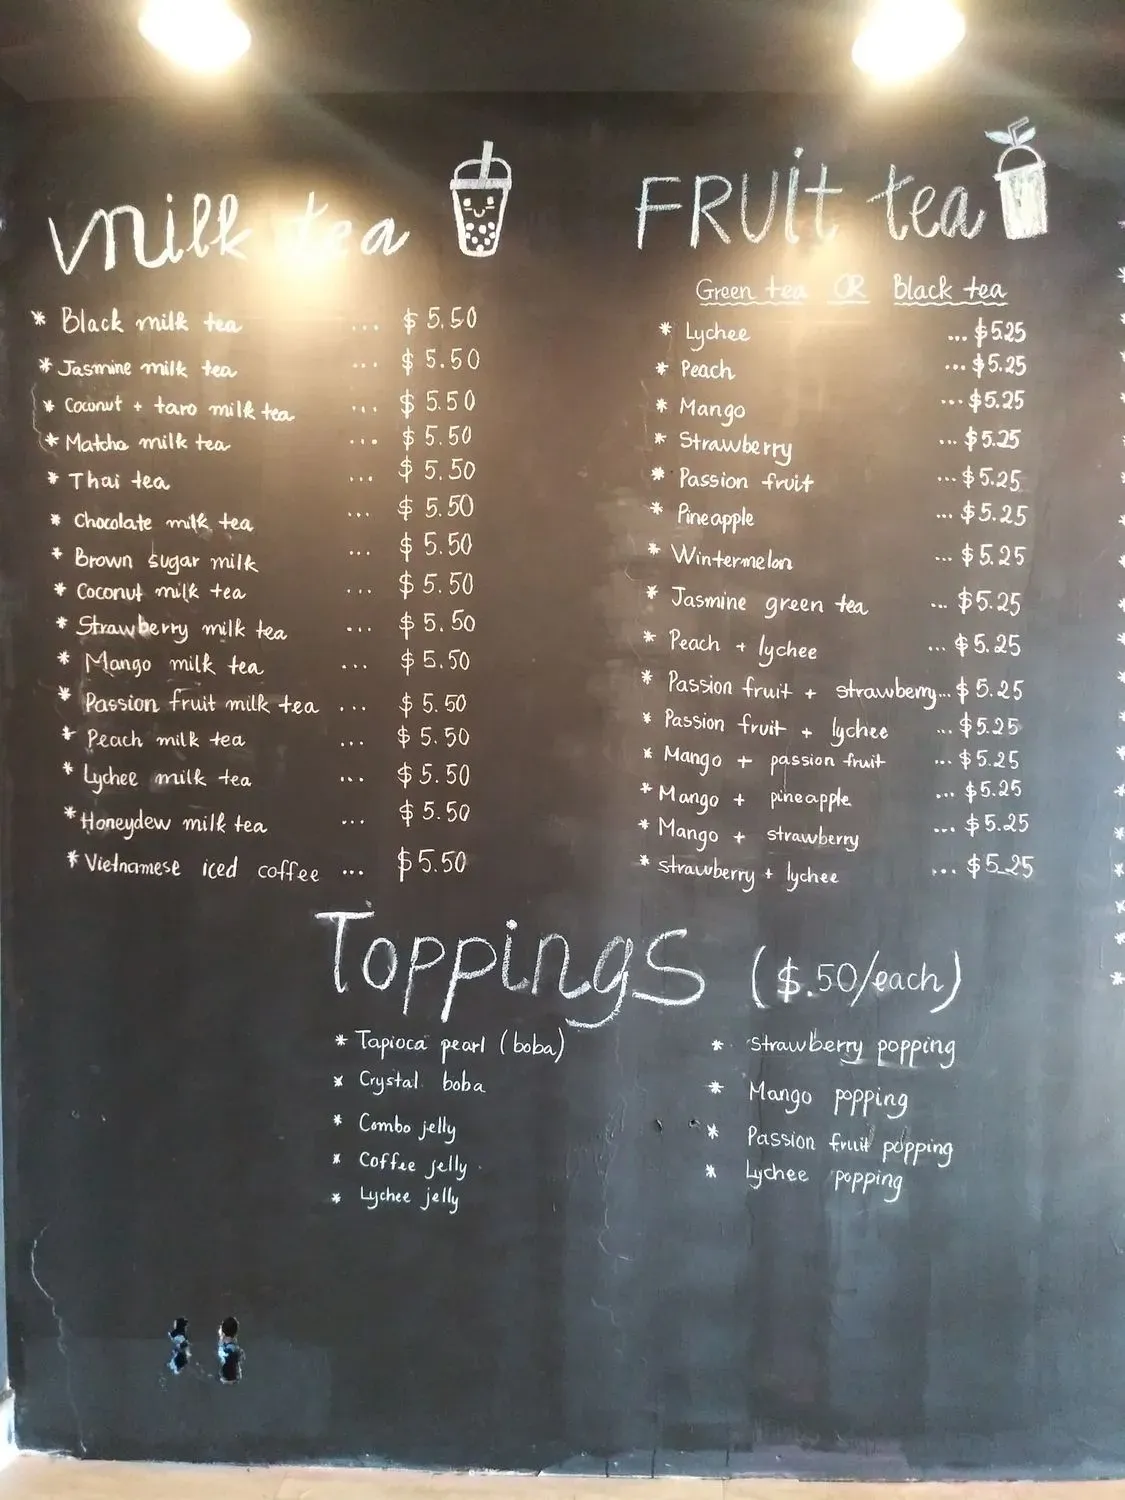 Milk tea
* Black milk tea ... $5.50
* Jasmine milk tea ... $5.50
* Coconut + taro milk tea ... $5.50
* Matcha milk tea ... $5.50
* Thai tea ... $5.50
* Chocolate milk tea ... $5.50
* Brown sugar milk ... $5.50
* Coconut milk tea ... $5.50
* Strawberry milk tea ... $5.50
* Mango milk tea ... $5.50
* Passion fruit milk tea ... $5.50
* Peach milk tea ... $5.50
* Lychee milk tea ... $5.50
* Honeydew milk tea ... $5.50
* Vietnamese iced coffee ... $5.50
FRUit tea
Green tea OR Black tea
* Lychee ... $5.25
* Peach ... $5.25
* Mango ... $5.25
* Strawberry ... $5.25
* Passion fruit ... $5.25
* Pineapple ... $5.25
* Wintermelon ... $5.25
* Jasmine green tea ... $5.25
* Peach + lychee ... $5.25
* Passion fruit + strawberry... $5.25
* Passion fruit + lychee ... $5.25
* Mango + passion fruit ... $5.25
* Mango + pineapple ... $5.25
* Mango + strawberry ... $5.25
* strawberry + lychee ... $5.25
ToppingS ($.50/each)
* Tapioca pearl (boba)
* Crystal boba
* Combo jelly
* Coffee jelly
* Lychee jelly
* Strawberry popping
* Mango popping
* Passion fruit popping
* Lychee popping